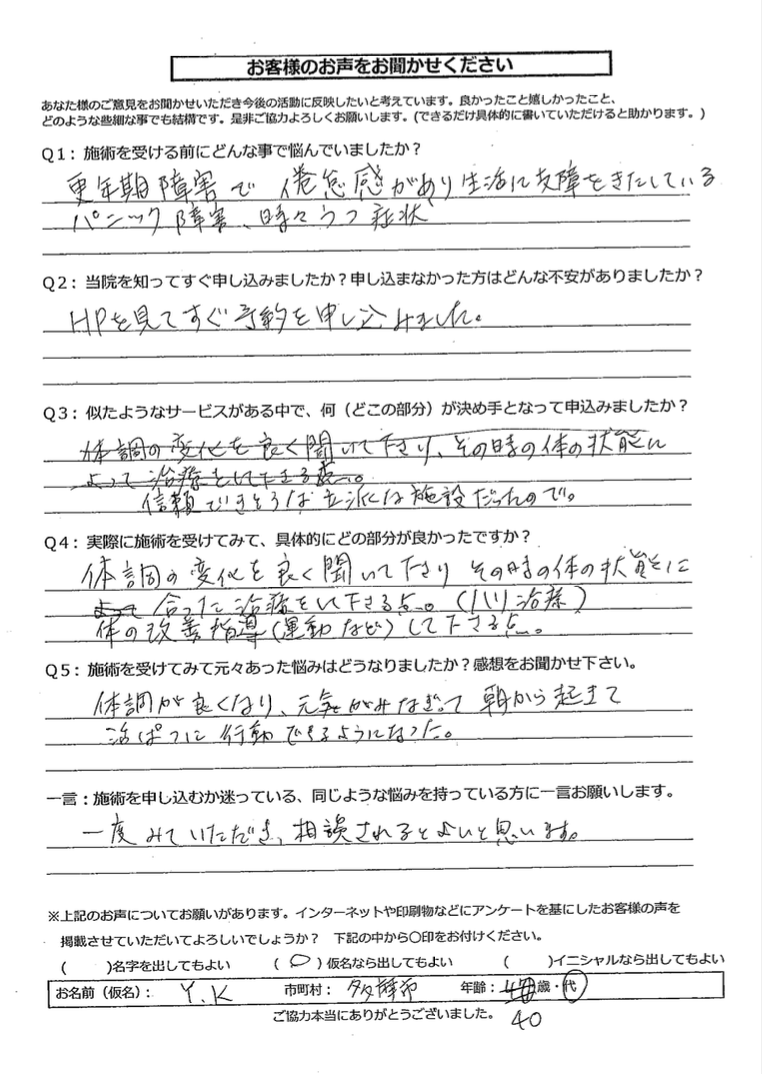 お客様のお声をお聞かせください
あなた様のご意見をお聞かせいただき今後の活動に反映したいと考えています。良かったこと嬉しかったこと、
どのような些細な事でも結構です。是非ご協力よろしくお願いします。(できるだけ具体的に書いていただけると助かります。)
Q1：施術を受ける前にどんな事で悩んでいましたか？
更年期障害で 倦怠感があり生活に支障をきたしている
パニック障害、時々うつ症状
Q2：当院を知ってすぐ申し込みましたか？申し込まなかった方はどんな不安がありましたか？
HPを見てすぐ予約を申し込みました。
Q3：似たようなサービスがある中で、何（どこの部分）が決め手となって申込みましたか？
体調の変化を良く聞いて下さり、その時の体の状態に
よって治療をして下さる点。
信頼できそうな立派な施設だったので。
Q4：実際に施術を受けてみて、具体的にどの部分が良かったですか？
体調の変化を良く聞いて下さり その時の体の状態に
よって 合った治療をして下さる点。（ハリ治療）
体の改善指導（運動など）して下さる点。
Q5：施術を受けてみて元々あった悩みはどうなりましたか？感想をお聞かせ下さい。
体調が良くなり、元気がみなぎって 朝から起きて
活ぱつに行動できるようになった。
一言：施術を申し込むか迷っている、同じような悩みを持っている方に一言お願いします。
一度みていただき、相談されるとよいと思います。
※上記のお声についてお願いがあります。インターネットや印刷物などにアンケートを基にしたお客様の声を
掲載させていただいてよろしいでしょうか？ 下記の中から〇印をお付けください。
( )名字を出してもよい ( 〇 )仮名なら出してもよい ( )イニシャルなら出してもよい
お名前（仮名）： Y.K 市町村： 多摩市 年齢： 歳・代
ご協力本当にありがとうございました。 40